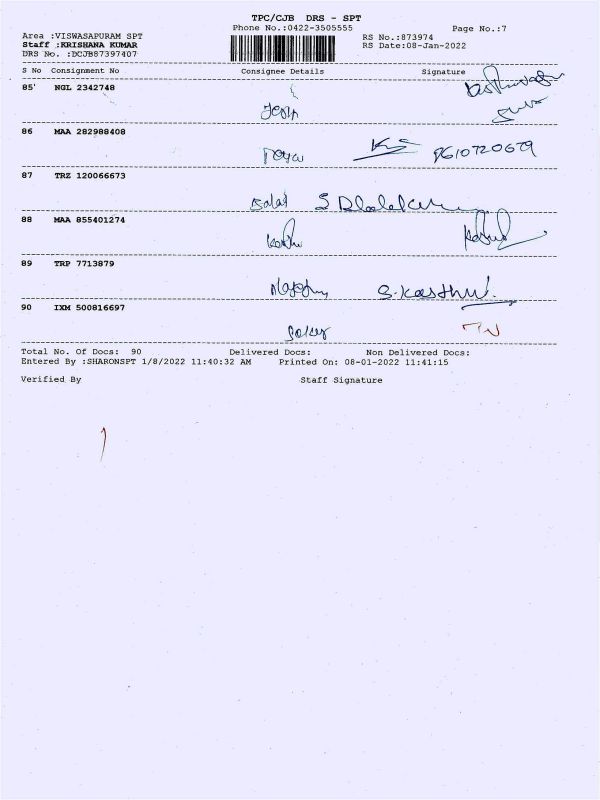 TPC/CJB DRS - SPT
Phone No.:0422-3505555
Page No.:7
Area :VISWASAPURAM SPT
RS No.:873974
Staff :KRISHANA KUMAR
RS Date:08-Jan-2022
DRS No. :DCJB87397407
S No Consignment No Consignee Details Signature
85 NGL 2342748
86 MAA 282988408
Kr 9610720679
87 TRZ 120066673
Balaji
88 MAA 855401274
89 TRP 7713879
S.Kasthuri
90 IXM 500816697
Total No. Of Docs: 90 Delivered Docs: Non Delivered Docs:
Entered By :SHARONSPT 1/8/2022 11:40:32 AM Printed On: 08-01-2022 11:41:15
Verified By Staff Signature